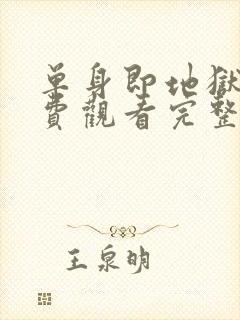 單身即地獄
費觀看完整
王泉明